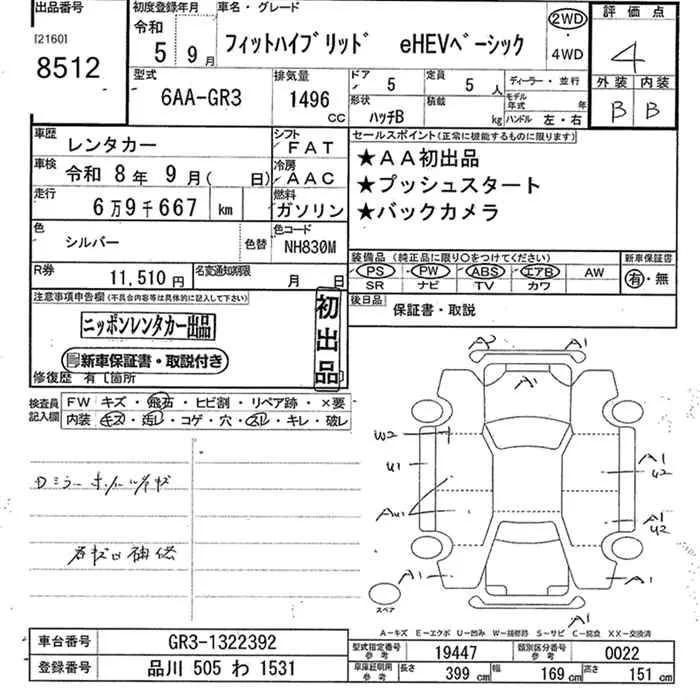 出品番号
[2160]
8512
初度登録年月
令和
5年 9月
車名・グレード
フィットハイブリッド eHEVベーシック
2WD
・
4WD
評価点
4
外装 内装
B B
型式
6AA-GR3
排気量
1496
CC
ドア 5
定員 5人
ディーラー・並行
形状 ハッチB
積載 kg
モデル年式 年
ハンドル 左・右
車歴 レンタカー
シフト FAT
車検 令和 8年 9月( 日)
冷房 AAC
走行 6万9千667 km
燃料 ガソリン
色 シルバー
色替
色コード NH830M
R券 11,510円
名変通知期限 月 日
セールスポイント(正常に機能するものに限ります)
★AA初出品
★プッシュスタート
★バックカメラ
装備品(純正品に限り○をつけてください)
PS PW ABS エアB AW
SR ナビ TV カワ
新車保証書
有・無
後日品 保証書・取説
注意事項申告欄(不具合内容等は具体的に記入して下さい)
ニッポンレンタカー出品
新車保証書・取説付き
初出品
修復歴 有[箇所
検査員記入欄
FW キズ・飛石・ヒビ割・リペア跡・×要
内装 キズ・汚レ・コゲ・穴・スレ・キレ・破レ
A2 A1
A1
W2
U1
A1
U2
A1
U2
A1
A1
A1
スペア
A-キズ E-エクボ U-凹み W-補修跡 S-サビ C-腐食 XX-交換済
車台番号 GR3-1322392
登録番号 品川 505 わ 1531
型式指定番号 参考 19447
類別区分番号 参考 0022
車庫証明用 参考
長さ 399 cm 幅 169 cm 高さ 151 cm